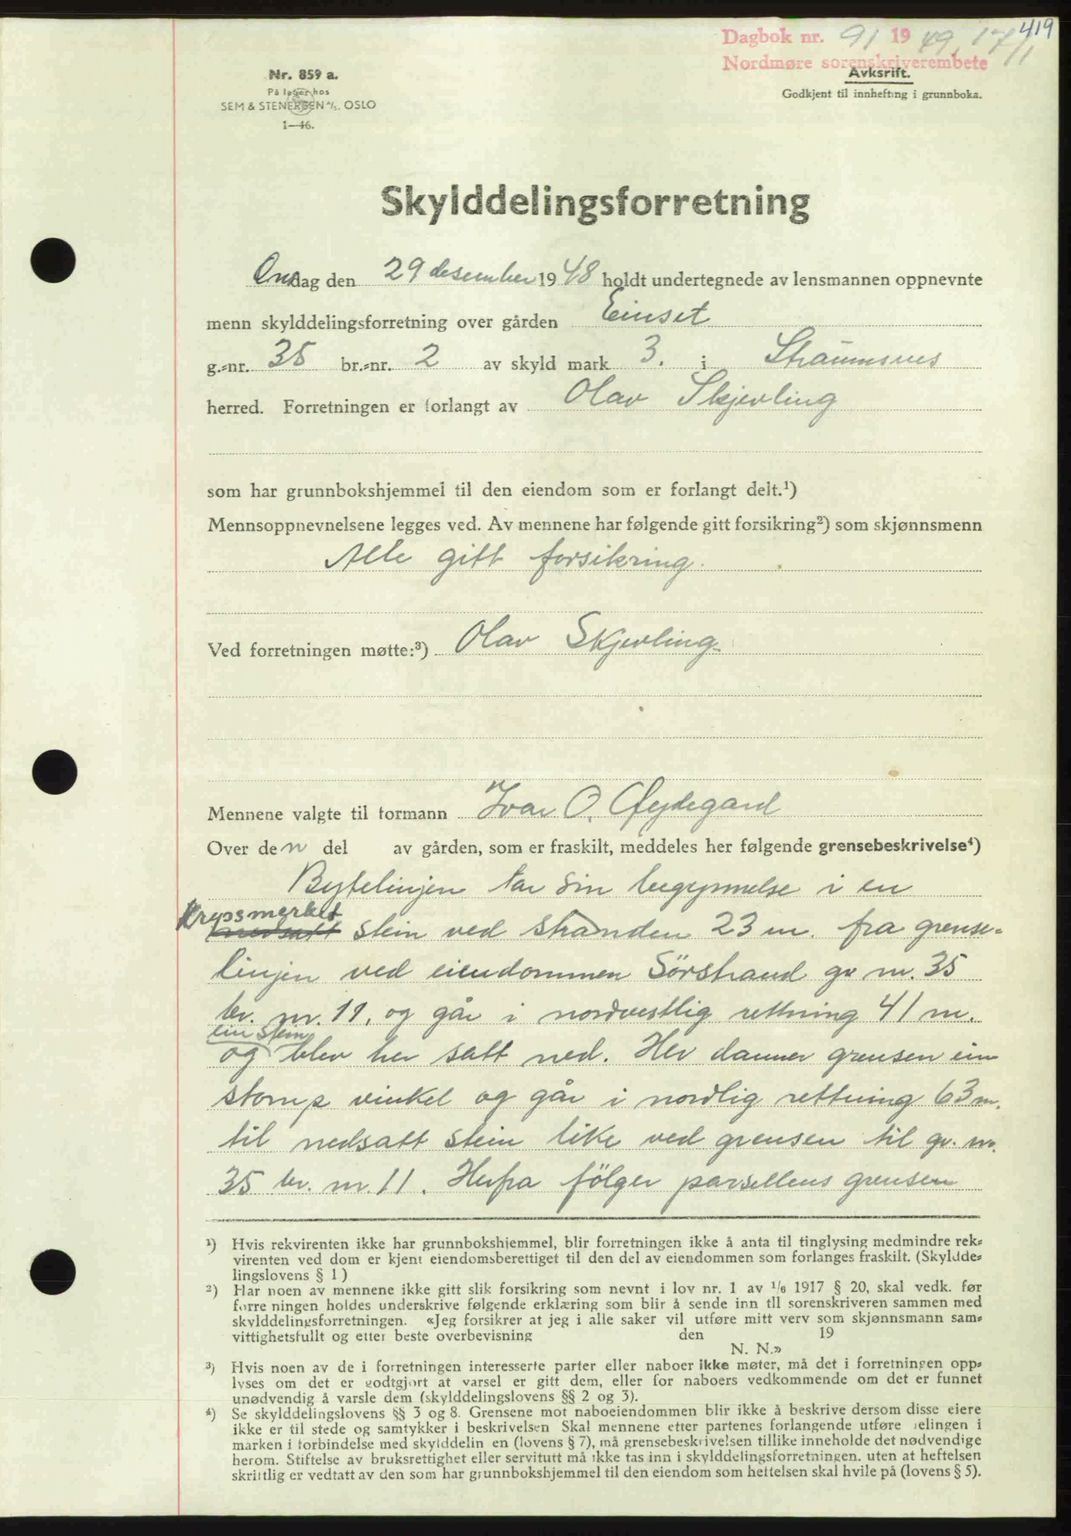 419
Dagbok nr. 91 1949, 17/1
Nordmøre sorenskriverembete
Nr. 859 a.
På lager hos
SEM & STENERSEN A/S. OSLO
1—46.
Avksrift.
Godkjent til innhefting i grunnboka.
Skylddelingsforretning
Onsdag den 29 desember 1948 holdt undertegnede av lensmannen oppnevnte
menn skylddelingsforretning over gården Einset
g.-nr. 35 br.-nr. 2 av skyld mark 3. i Straumsnes
herred. Forretningen er forlangt av Olav Skjevling
som har grunnbokshjemmel til den eiendom som er forlangt delt.¹)
Mennsoppnevnelsene legges ved. Av mennene har følgende gitt forsikring²) som skjønnsmenn
Alle gitt forsikring.
Ved forretningen møtte:³) Olav Skjevling.
Mennene valgte til formann Ivar O. Øydegard
Over den del av gården, som er fraskilt, meddeles her følgende grensebeskrivelse⁴)
Bytelinjen tar sin begynnelse i en
Kryssmerket
nedsatt stein ved stranden 23 m. fra grense-
linjen ved eiendommen Sörstrand gr. nr. 35
br. nr. 11, og går i nordvestlig rettning 41 m.
ein stein
og blev her satt ned. Her danner grensen ein
stomp vinkel og går i nordlig rettning 63 m.
til nedsatt stein like ved grensen til gr. nr.
35 br. nr. 11. Herfra følger parsellens grensen
¹) Hvis rekvirenten ikke har grunnbokshjemmel, blir forretningen ikke å anta til tinglysing medmindre rek-
virenten ved dom er kjent eiendomsberettiget til den del av eiendommen som forlanges fraskilt. (Skyldde-
lingslovens § 1)
²) Har noen av mennene ikke gitt slik forsikring som nevnt i lov nr. 1 av 1/6 1917 § 20, skal vedk. før
forretningen holdes underskrive følgende erklæring som blir å sende inn til sorenskriveren sammen med
skylddelingsforretningen. «Jeg forsikrer at jeg i alle saker vil utføre mitt verv som skjønnsmann sam-
vittighetsfullt og etter beste overbevisning den 19
N. N.»
³) Hvis noen av de i forretningen interesserte parter eller naboer ikke møter, må det i forretningen opp-
lyses om det er godtgjort at varsel er gitt dem, eller for naboers vedkommende om det er funnet
unødvendig å varsle dem (skylddelingslovens §§ 2 og 3).
⁴) Se skylddelingslovens §§ 3 og 8. Grensene mot naboeiendommen blir ikke å beskrive dersom disse eiere
ikke er til stede og samtykker i beskrivelsen Skal mennene etter partenes forlangende utføre delingen i
marken i forbindelse med skylddelin en (lovens § 7), må grensebeskrivelsen tillike inneholde det nødvendige
herom. Stiftelse av bruksrettighet eller servitutt må ikke tas inn i skylddelingsforretningen, uten at heftelsen
skriftlig er vedtatt av den som har grunnbokshjemmel til den eiendom som heftelsen skal hvile på (lovens § 5).